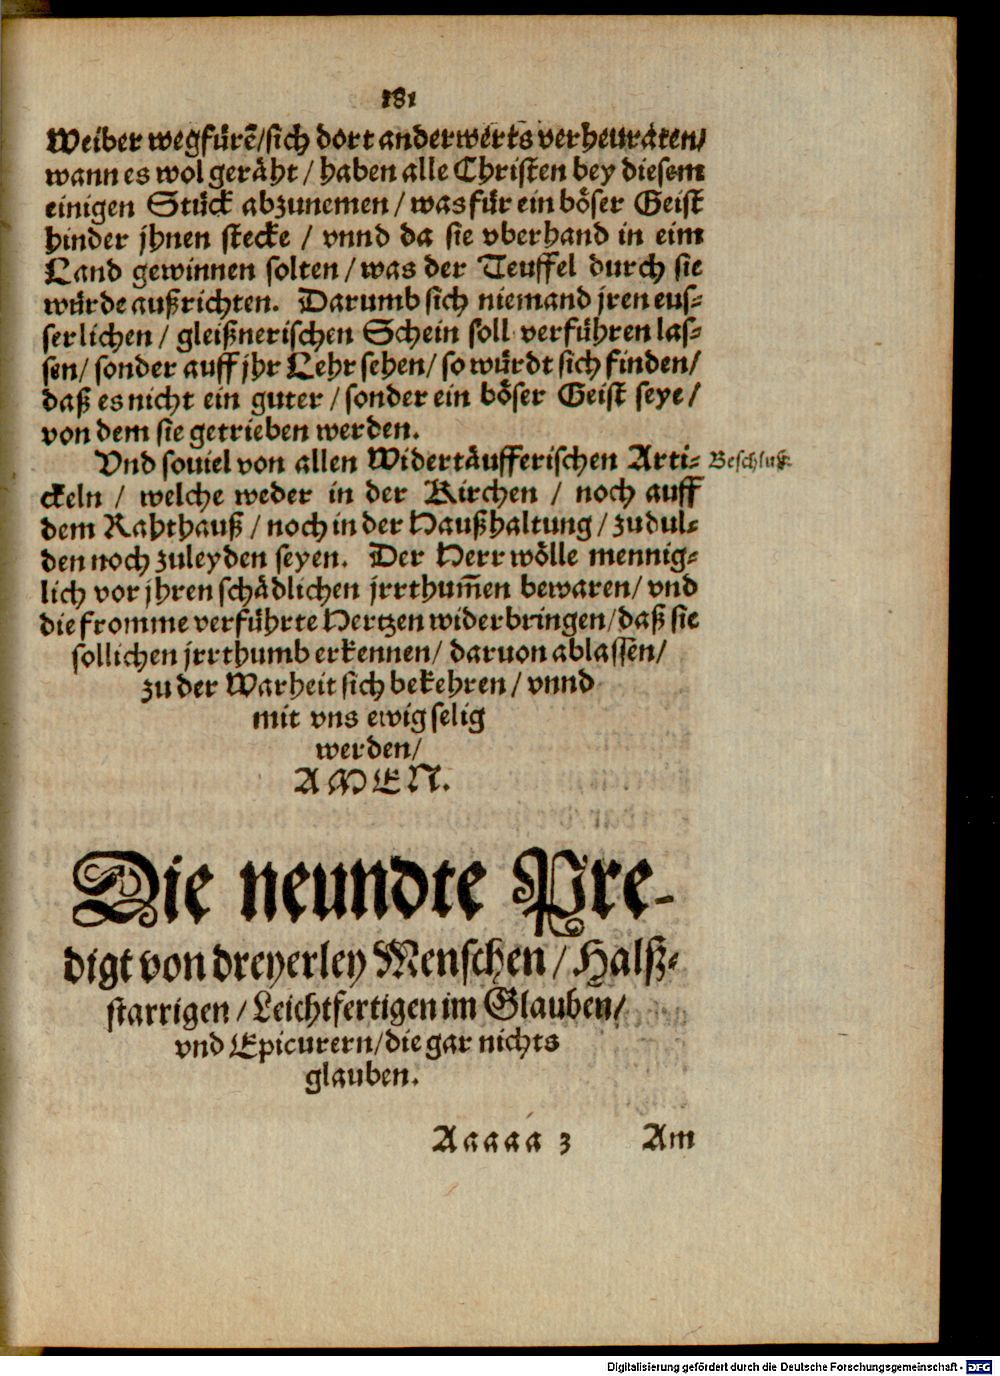 181
Weiber wegfürẽ/sich dort anderwerts verheuraten/
wann es wol geräht / haben alle Christen bey diesem
einigen Stück abzunemen / was für ein böser Geist
hinder jhnen stecke / vnnd da sie vberhand in eim
Land gewinnen solten / was der Teuffel durch sie
würde außrichten. Darumb sich niemand jren eus-
serlichen / gleißnerischen Schein soll verführen las-
sen/ sonder auff jhr Lehr sehen/ so würdt sich finden/
daß es nicht ein guter / sonder ein böser Geist seye /
von dem sie getrieben werden.
Vnd souiel von allen Widertäufferischen Arti- Beschluß.
ckeln / welche weder in der Kirchen / noch auff
dem Rahthauß / noch in der Haußhaltung / zudul-
den noch zuleyden seyen. Der Herr wölle mennig-
lich vor jhren schädlichen jrrthum̃en bewaren/ vnd
die fromme verführte Hertzen widerbringen/daß sie
sollichen jrrthumb erkennen/ daruon ablassen/
zu der Warheit sich bekehren / vnnd
mit vns ewig selig
werden/
AMEN.
Die neundte Pre-
digt von dreyerley Menschen / Halß-
starrigen / Leichtfertigen im Glauben/
vnd Epicurern/die gar nichts
glauben.
Aaaaa 3 Am
Digitalisierung gefördert durch die Deutsche Forschungsgemeinschaft - DFG